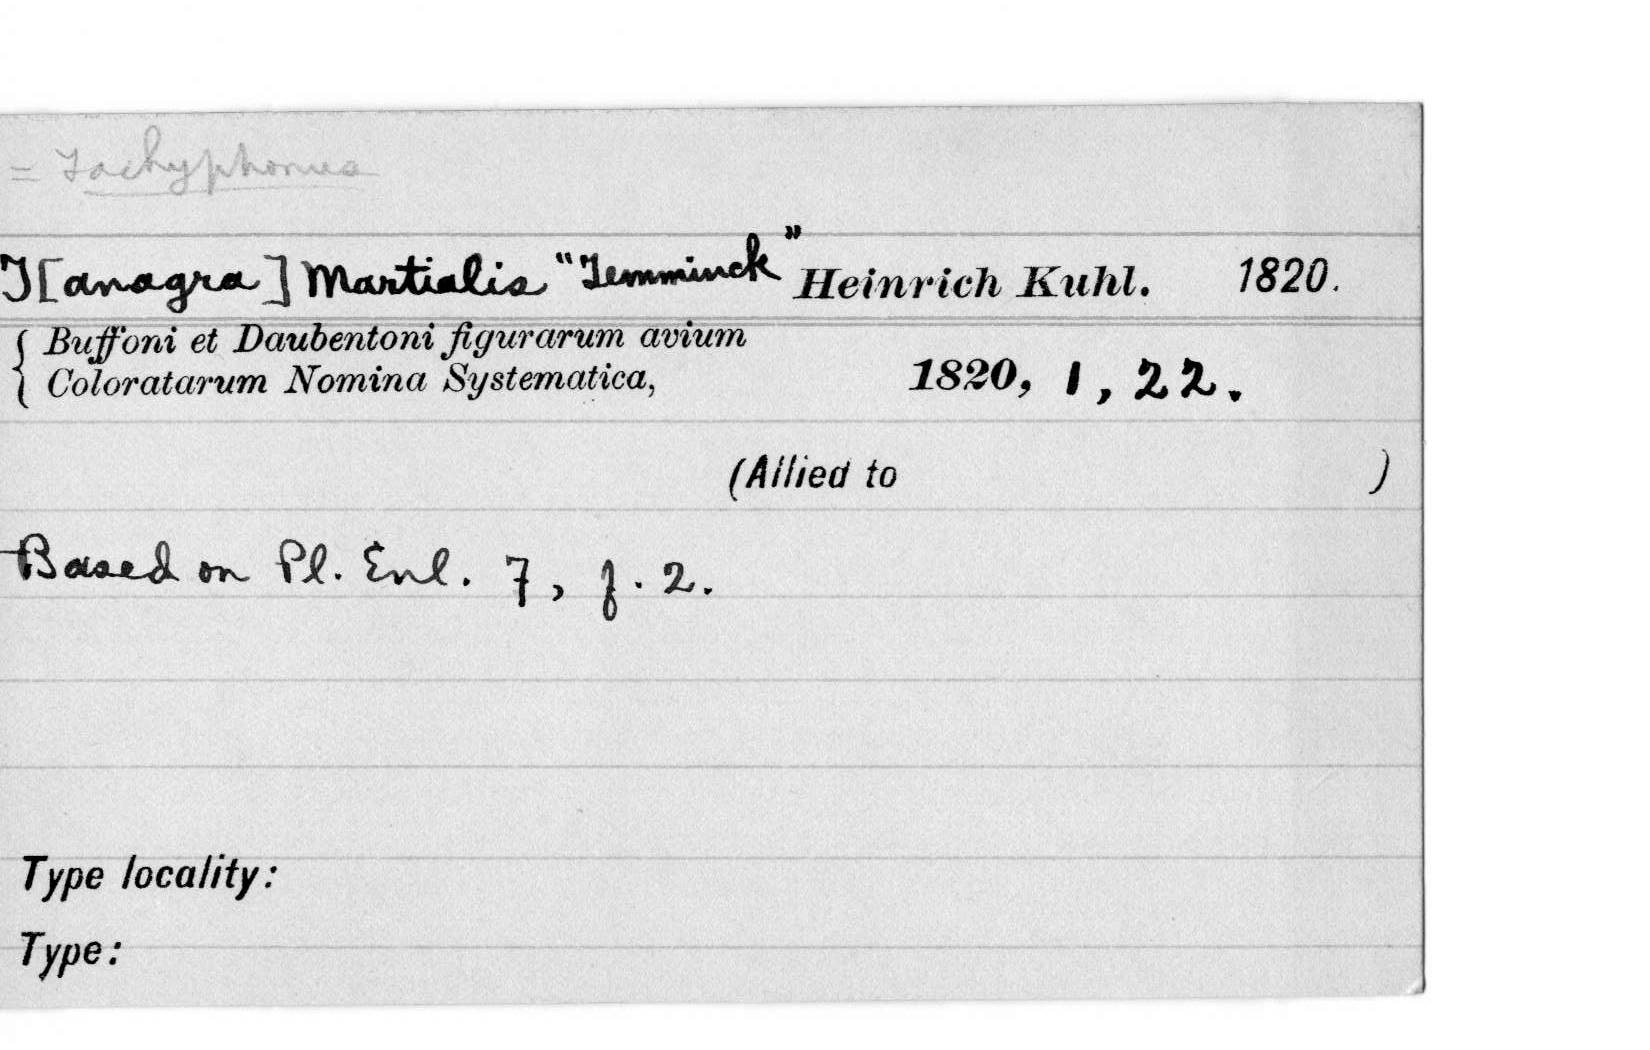 = Tachyphonus
T[anagra] Martialis "Temminck" Heinrich Kuhl. 1820.
Buffoni et Daubentoni figurarum avium
Coloratarum Nomina Systematica, 1820, 1, 22.
(Allied to )
Based on Pl. Enl. 7, f. 2.
Type locality:
Type: